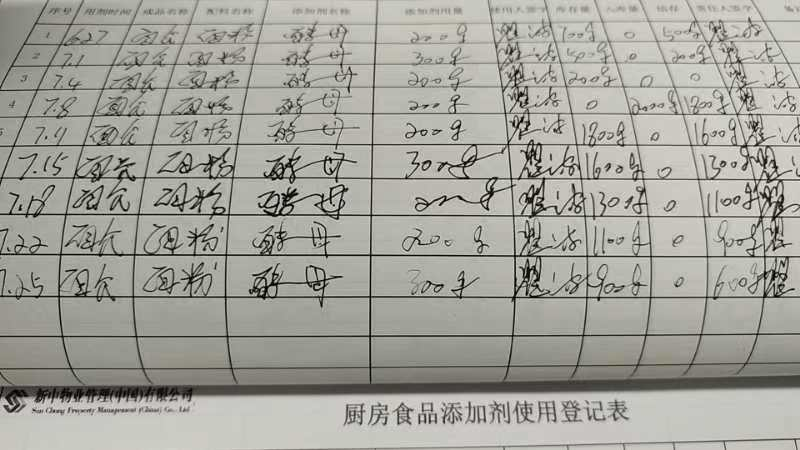 序号 用剂时间 成品名称 配料名称 添加剂名称 添加剂用量 使用人签字 库存量 入库量 结存 责任人签字 备注
1 6.27 面食 面粉 酵母 200g 700g 0 500g
2 7.1 面食 面粉 酵母 300g 500g 0 200g
3 7.4 面食 面粉 酵母 200g 200g 0 0
4 7.8 面食 面粉 酵母 200g 0 2000g 1800g
5 7.11 面食 面粉 酵母 200g 1800g 0 1600g
7.15 面食 面粉 酵母 300g 1600g 0 1300g
7.18 面食 面粉 酵母 200g 1300g 0 1100g
7.22 面食 面粉 酵母 200g 1100g 0 900g
7.25 面食 面粉 酵母 300g 900g 0 600g
新中物业管理(中国)有限公司
Sun Chong Property Management (China) Co., Ltd
厨房食品添加剂使用登记表